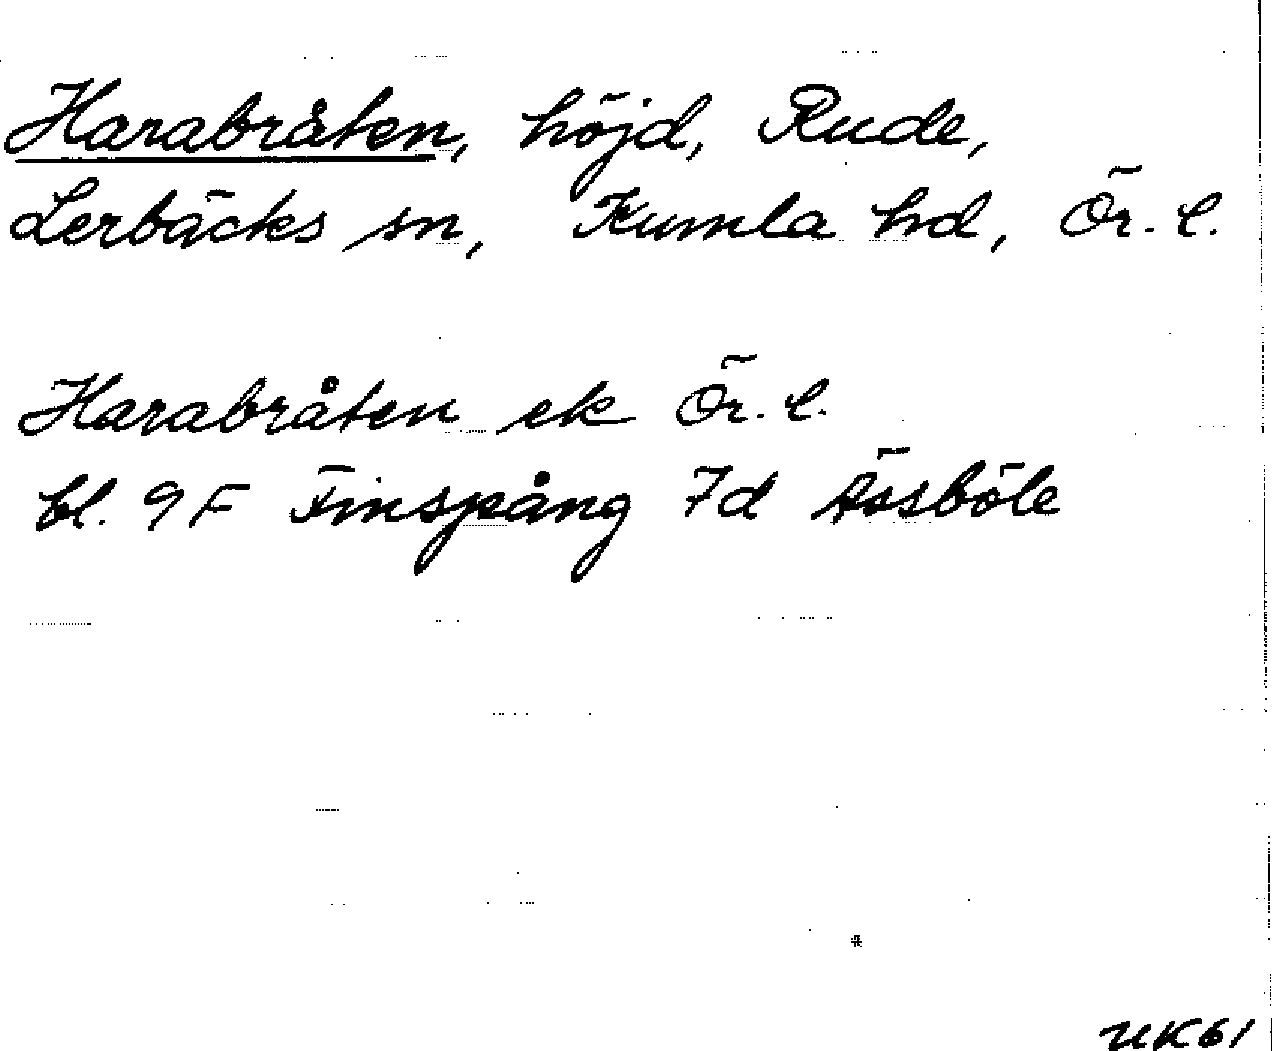 Harabråten, höjd, Rude,
Lerbäcks sn, Kumla hd, Ör. l.
Harabråten ek Ör. l.
bl. 9F Finspång 7d Åsböle
UK61